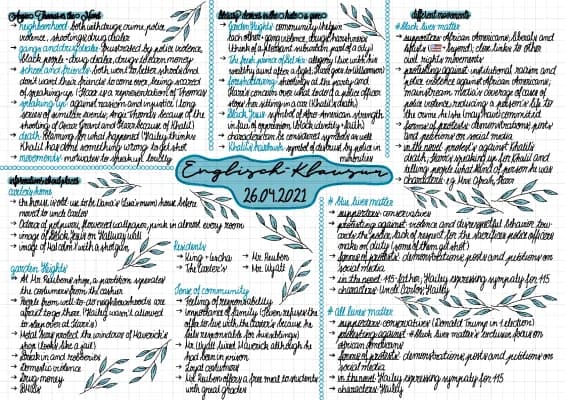 Angie Thomas's two Novels
→ neighborhood: both with huge crime, police
violence, shootings, drug dealer
→ gangs and drug dealer: frustrated by police violence,
Black people - drug dealer, drugs destroy money
→ school and friends: both want to
don't want their friends to come over, having scared
of speaking-up (Starr is a representation of Thomas)
→ speaking up: against racism and injustice (long
series of similar events; Angie Thomas because of the
shooting of Oscar Grant and Starr because of Khalil)
→ death: blaming for what happened (Hailey thinks
Khalil has done something wrong to get shot
→ movements: motivates to speak up loudly
→ Garden Heights: community (helping
each other - gang violence, drugs, harshness)
→ The Fresh Prince of Bel-Air: allegory (live with his
wealthy aunt after a fight, Starr goes to Williamson)
→ foreshadowing: shootings at the party and
Starr's concern over what to do if a police officer
stops her, sitting in a car (Khalil's death)
→ Black Jesus: symbol of afro-american strength
in face of oppression (Black identity + faith)
→ characterization: be considered as
→ Khalil's hairbrush: symbol of distrust by police in
minorities
different movements
# Black lives matter
→ supporters: african americans, liberals and
leftists ( + beyond), close links to other
civil rights movements
→ protesting against: institutional racism and
police violence against african americans,
mainstream media's coverage of cases of
police violence, reducing a person's life to
the crime he/she (may have) committed
→ forms of protests: demonstrations, prints
and petitions on social media
→ in the novel: protests against Khalil's
death, Starr's speaking up for Khalil and
telling people what kind of person he was
→ characters: e.g. Mrs. Ofrah, Starr
Englisch - Klausur
26.04.2021
information about places
Carter's home
→ the house is old, use to be Nana's (Lisa's mum) house before
moved to uncle Carlos
→ Odors of potpourri, flowered wallpaper, pink in almost every room
→ image of Black Jesus on hallway wall
→ image of Malcolm X with a shotgun
garden Heights
→ At Mr. Reuben's shop, a partition separates
the customers from the cashier
→ People from well-to-do neighborhoods are
afraid to go there (Hailey wasn't allowed
to sleep over at Starr's)
→ Metal bars protect the windows of Maverick's
shop (looks like a jail)
→ Break in and robberies
→ Domestic violence
→ Drug money
→ Bullets
Residents
→ King + Iesha
→ The Carter's
→ Mr. Reuben
→ Mr. Wyatt
Sense of community
→ Feeling of responsability
→ importance of family (Seven refuses the
offer to live with the Carter's because he
feels responsible for his siblings)
→ Mr. Wyatt hired Maverick although he
had been in prison
→ Loyal customers
→ Mr. Reuben offers a free meal to students
with great grades
# blue lives matter
→ supporters: conservatives
→ protesting against: violence and disrespectful behavior tow-
ards the police, lack of respect for the sacrifices police officers
make on duty (some of them get shot)
→ forms of protests: demonstrations, prints and petitions on
social media
→ in the novel: 115-father, Hailey expressing sympathy for 115
→ characters: Uncle Carlos, Hailey
# all lives matter
→ supporters: conservatives (Donald Trump in 1. election)
→ protesting against: #Black lives matter's exclusive focus on
african americans
→ forms of protests: demonstrations, prints and petitions on
social media
→ in the novel: Hailey expressing sympathy for 115
→ characters: Hailey